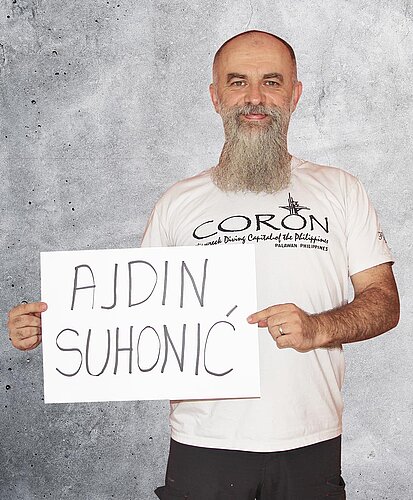 CORON
Wreck Diving Capital of the Philippines
PALAWAN PHILIPPINES
AJDIN
SUHONIĆ